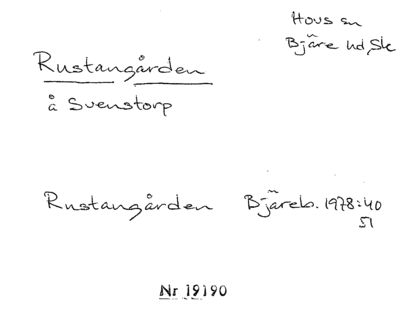 Hovs sn
Bjäre hd, Sk
Rustangården
å Svenstorp
Rustangården Bjäreb. 1978:40
51
Nr 19190